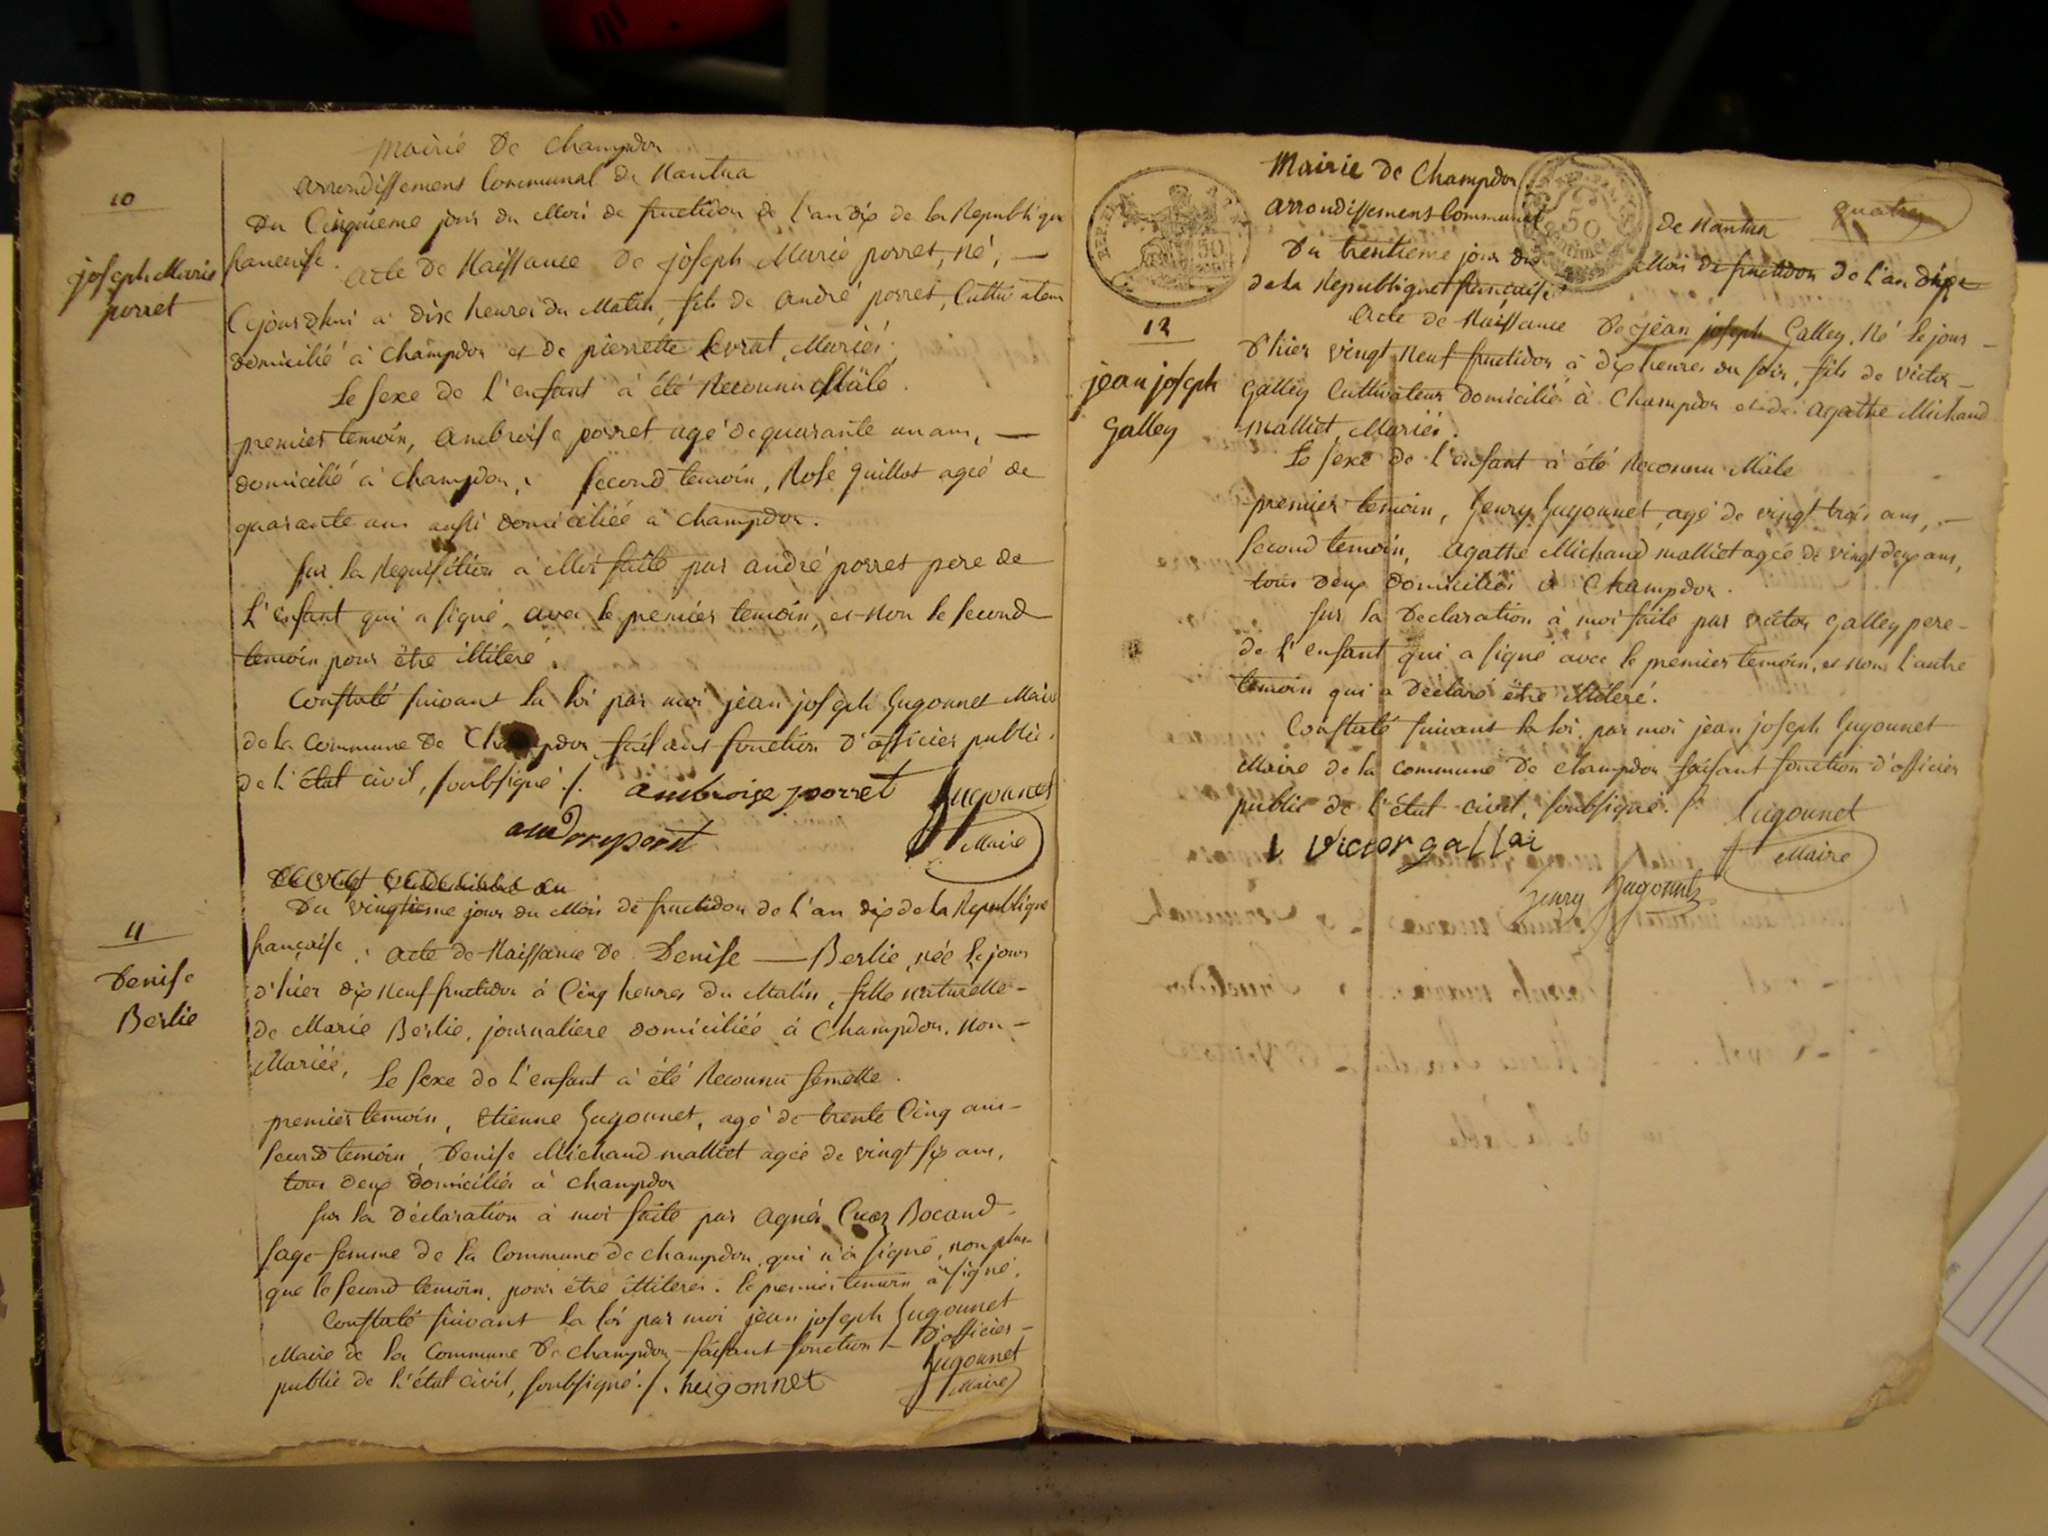 Mairié de Champdor
arrondissement Communal de Nantua
10
Du Cinquieme jour du Mois de fructidor de l'an dix de la Republique
francaise. acte de Naissance de joseph Marie porret, né, —
joseph Marie
porret
Cejourdhui à dix heures du Matin, fils de andré porret, Cultivateur
domicilié à Champdor et de pierrette Levrat, Mariés.
Le sexe de l'enfant à été Reconnu Mâle.
premier temoin, ambroise porret agé de quarante un ans, —
domicilié à Champdor. Second temoin, Rose Guillot agée de
quarante ans aussi domiciliée à Champdor.
sur la Requisition à Moi faite par andré porret pere de
l'enfant qui a signé avec le premier temoin, et non le second
temoin pour être illiteré.
Constaté suivant la loi par moi jean joseph Hugonnet Maire
de la Commune de Champdor, faisant fonction d'officier public
de l'état civil, soubsigné ./. ambroise porret Hugonnet
Maire
11
Du vingtieme jour du Mois de fructidor de l'an dix de la Republique
française. acte de Naissance de Denise — Berlie, née le jour
Denise
Berlie
d'hier dix neuf fructidor à Cinq heures du Matin, fille naturelle -
de Marie Berlie, journaliere domiciliée à Champdor, non -
Mariée, Le sexe de l'enfant à été Reconnu femelle.
premier temoin, Etienne Hugonnet, agé de trente Cinq ans -
second temoin, Denise Michaud malliet agée de vingt six ans,
tous deux domiciliés à Champdor
sur la Déclaration à moi faite par agnés Bocand -
sage-femme de la Commune de champdor, qui n'à signé, non plus
que le second temoin, pour être illiterés. le premier temoin à signé.
Constaté suivant la loi par moi jean joseph Hugonnet
Maire de la Commune de champdor faisant fonction - d'officier -
public de l'état civil, soubsigné ./. hugonnet Hugonnet
Maire
Mairie de Champdor
arrondissement Communal de Nantua
Du trentieme jour du Mois de fructidor de l'an dix
de la Republique française
50
50
12
jean joseph
Galley
acte de Naissance de jean joseph Galley, Né le jour -
d'hier vingt neuf fructidor à dix heures du soir, fils de victor -
Galley Cultivateur domicilié à Champdor et de agathe Michaud
malliet, Mariés.
Le sexe de l'enfant à été Reconnu Mâle
premier temoin, henry hugonnet, agé de vingt trois ans, -
second temoin, agathe Michaud malliet agée de vingt deux ans,
tous deux domiciliés à Champdor.
sur la Declaration à moi faite par victor Galley pere -
de l'enfant qui a signé avec le premier temoin, et non l'autre
temoin qui a déclaré être illiteré.
Constaté suivant la loi, par moi jean joseph hugonnet
Maire de la commune de champdor faisant fonction d'officier
public de l'état civil, soubsigné. /. hugonnet
Maire
Victor gallai
henry hugonnet